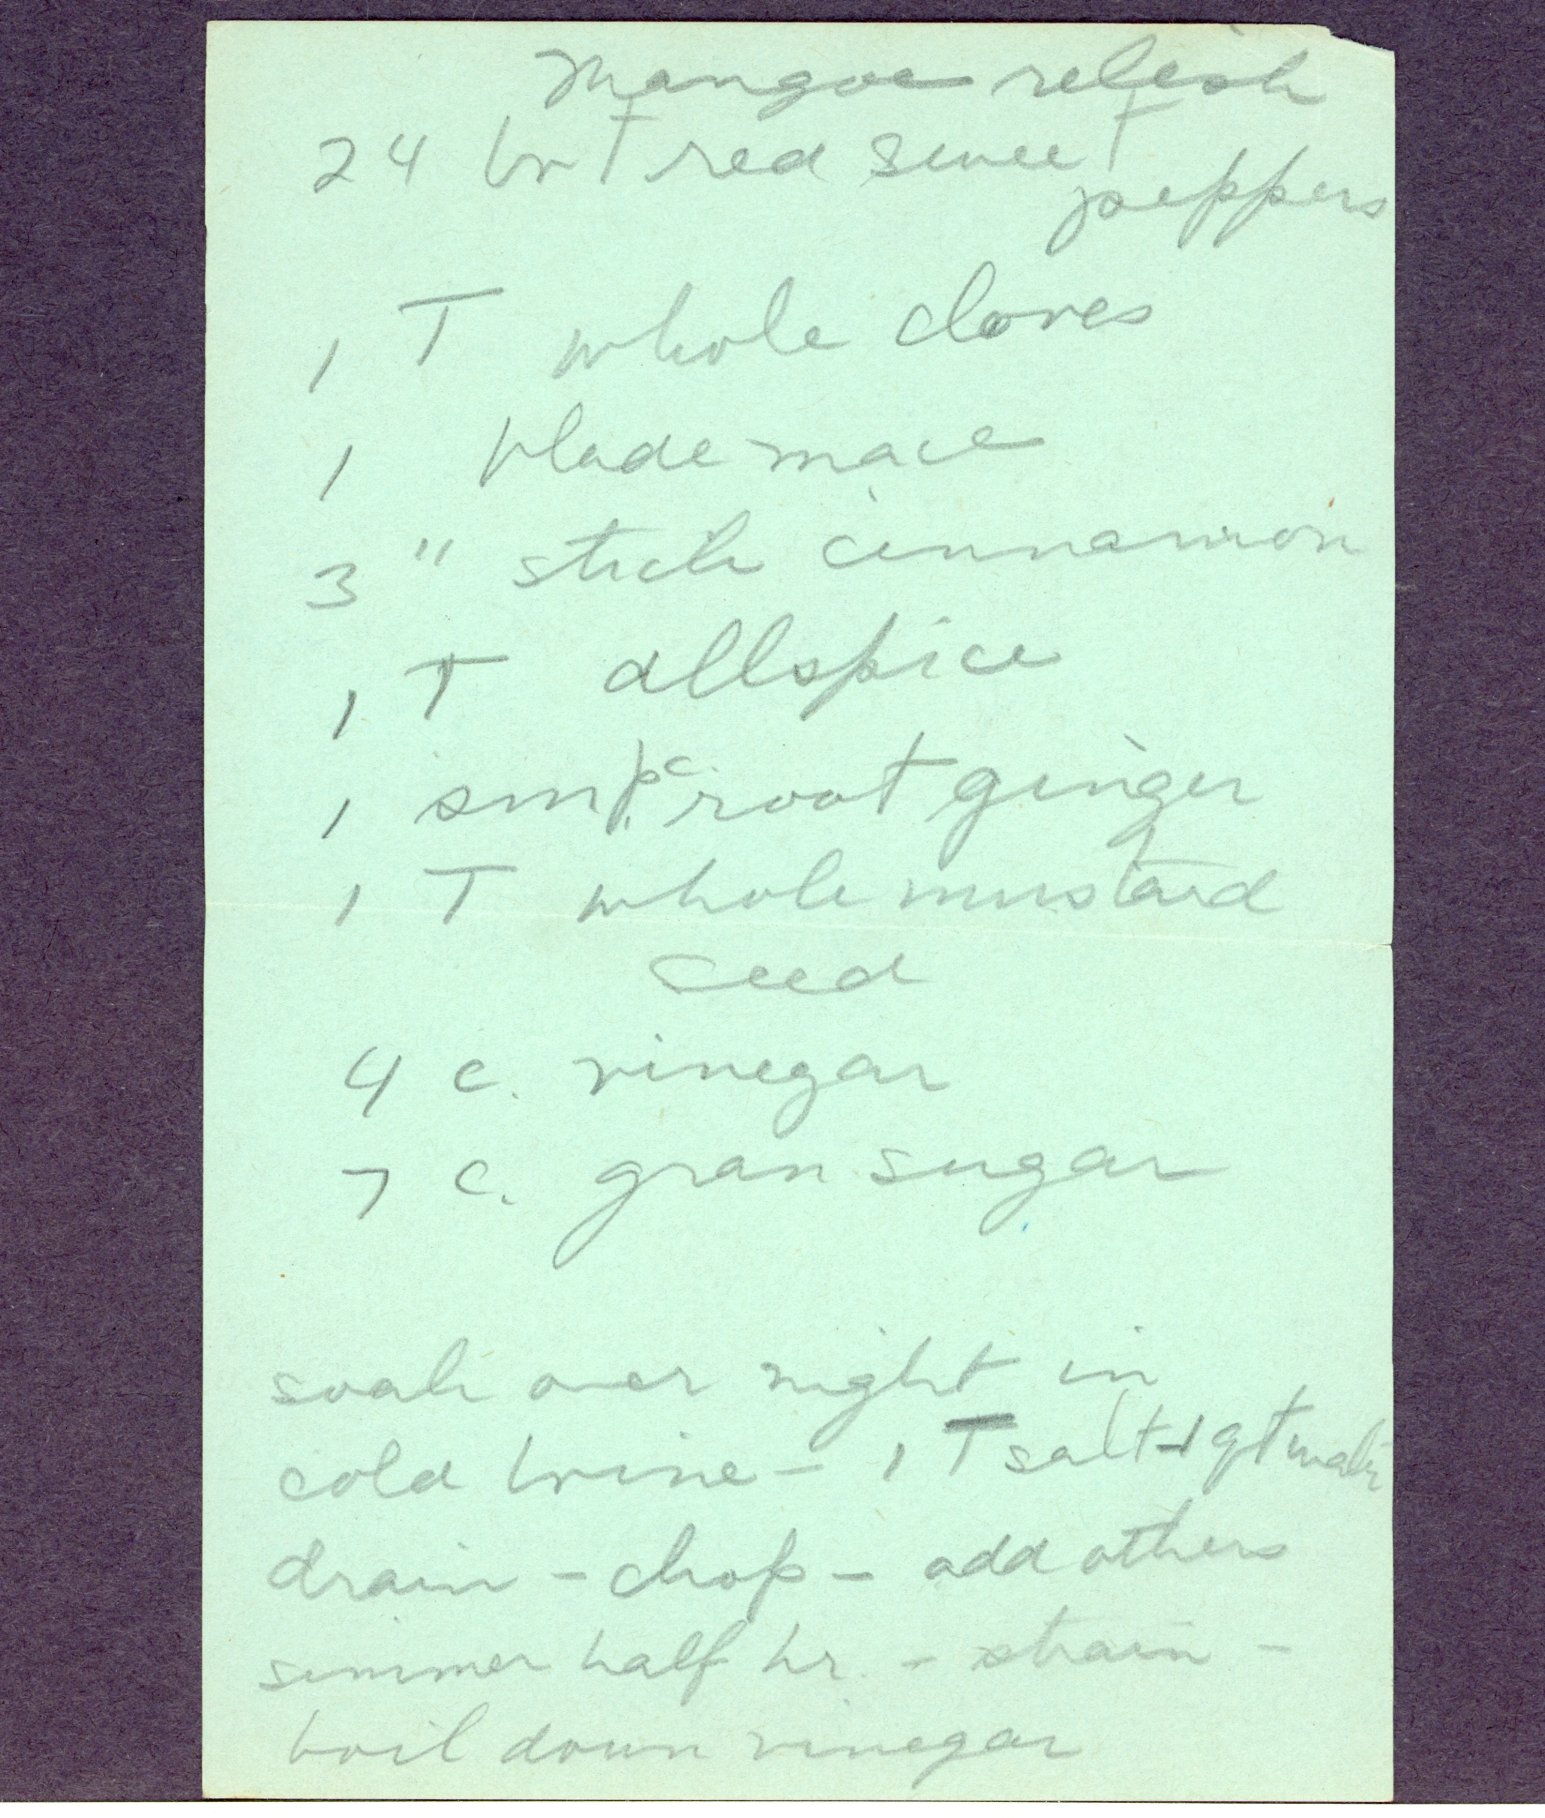 Mangoe relish
24 brT red sweeT
peppers
1 T whole cloves
1 blade mace
3 " stick cinnamon
1 T allspice
1 sm pc. root ginger
1 T whole mustard
seed
4 c. vinegar
7 c. gran sugar
soak over night in
cold brine - 1 T salt - 1 qt water
drain - chop - add others
simmer half hr. - strain -
boil down vinegar